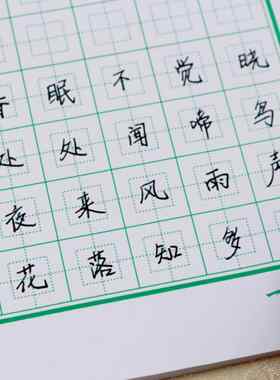 春眠不觉晓
处处闻啼鸟
夜来风雨声
花落知多